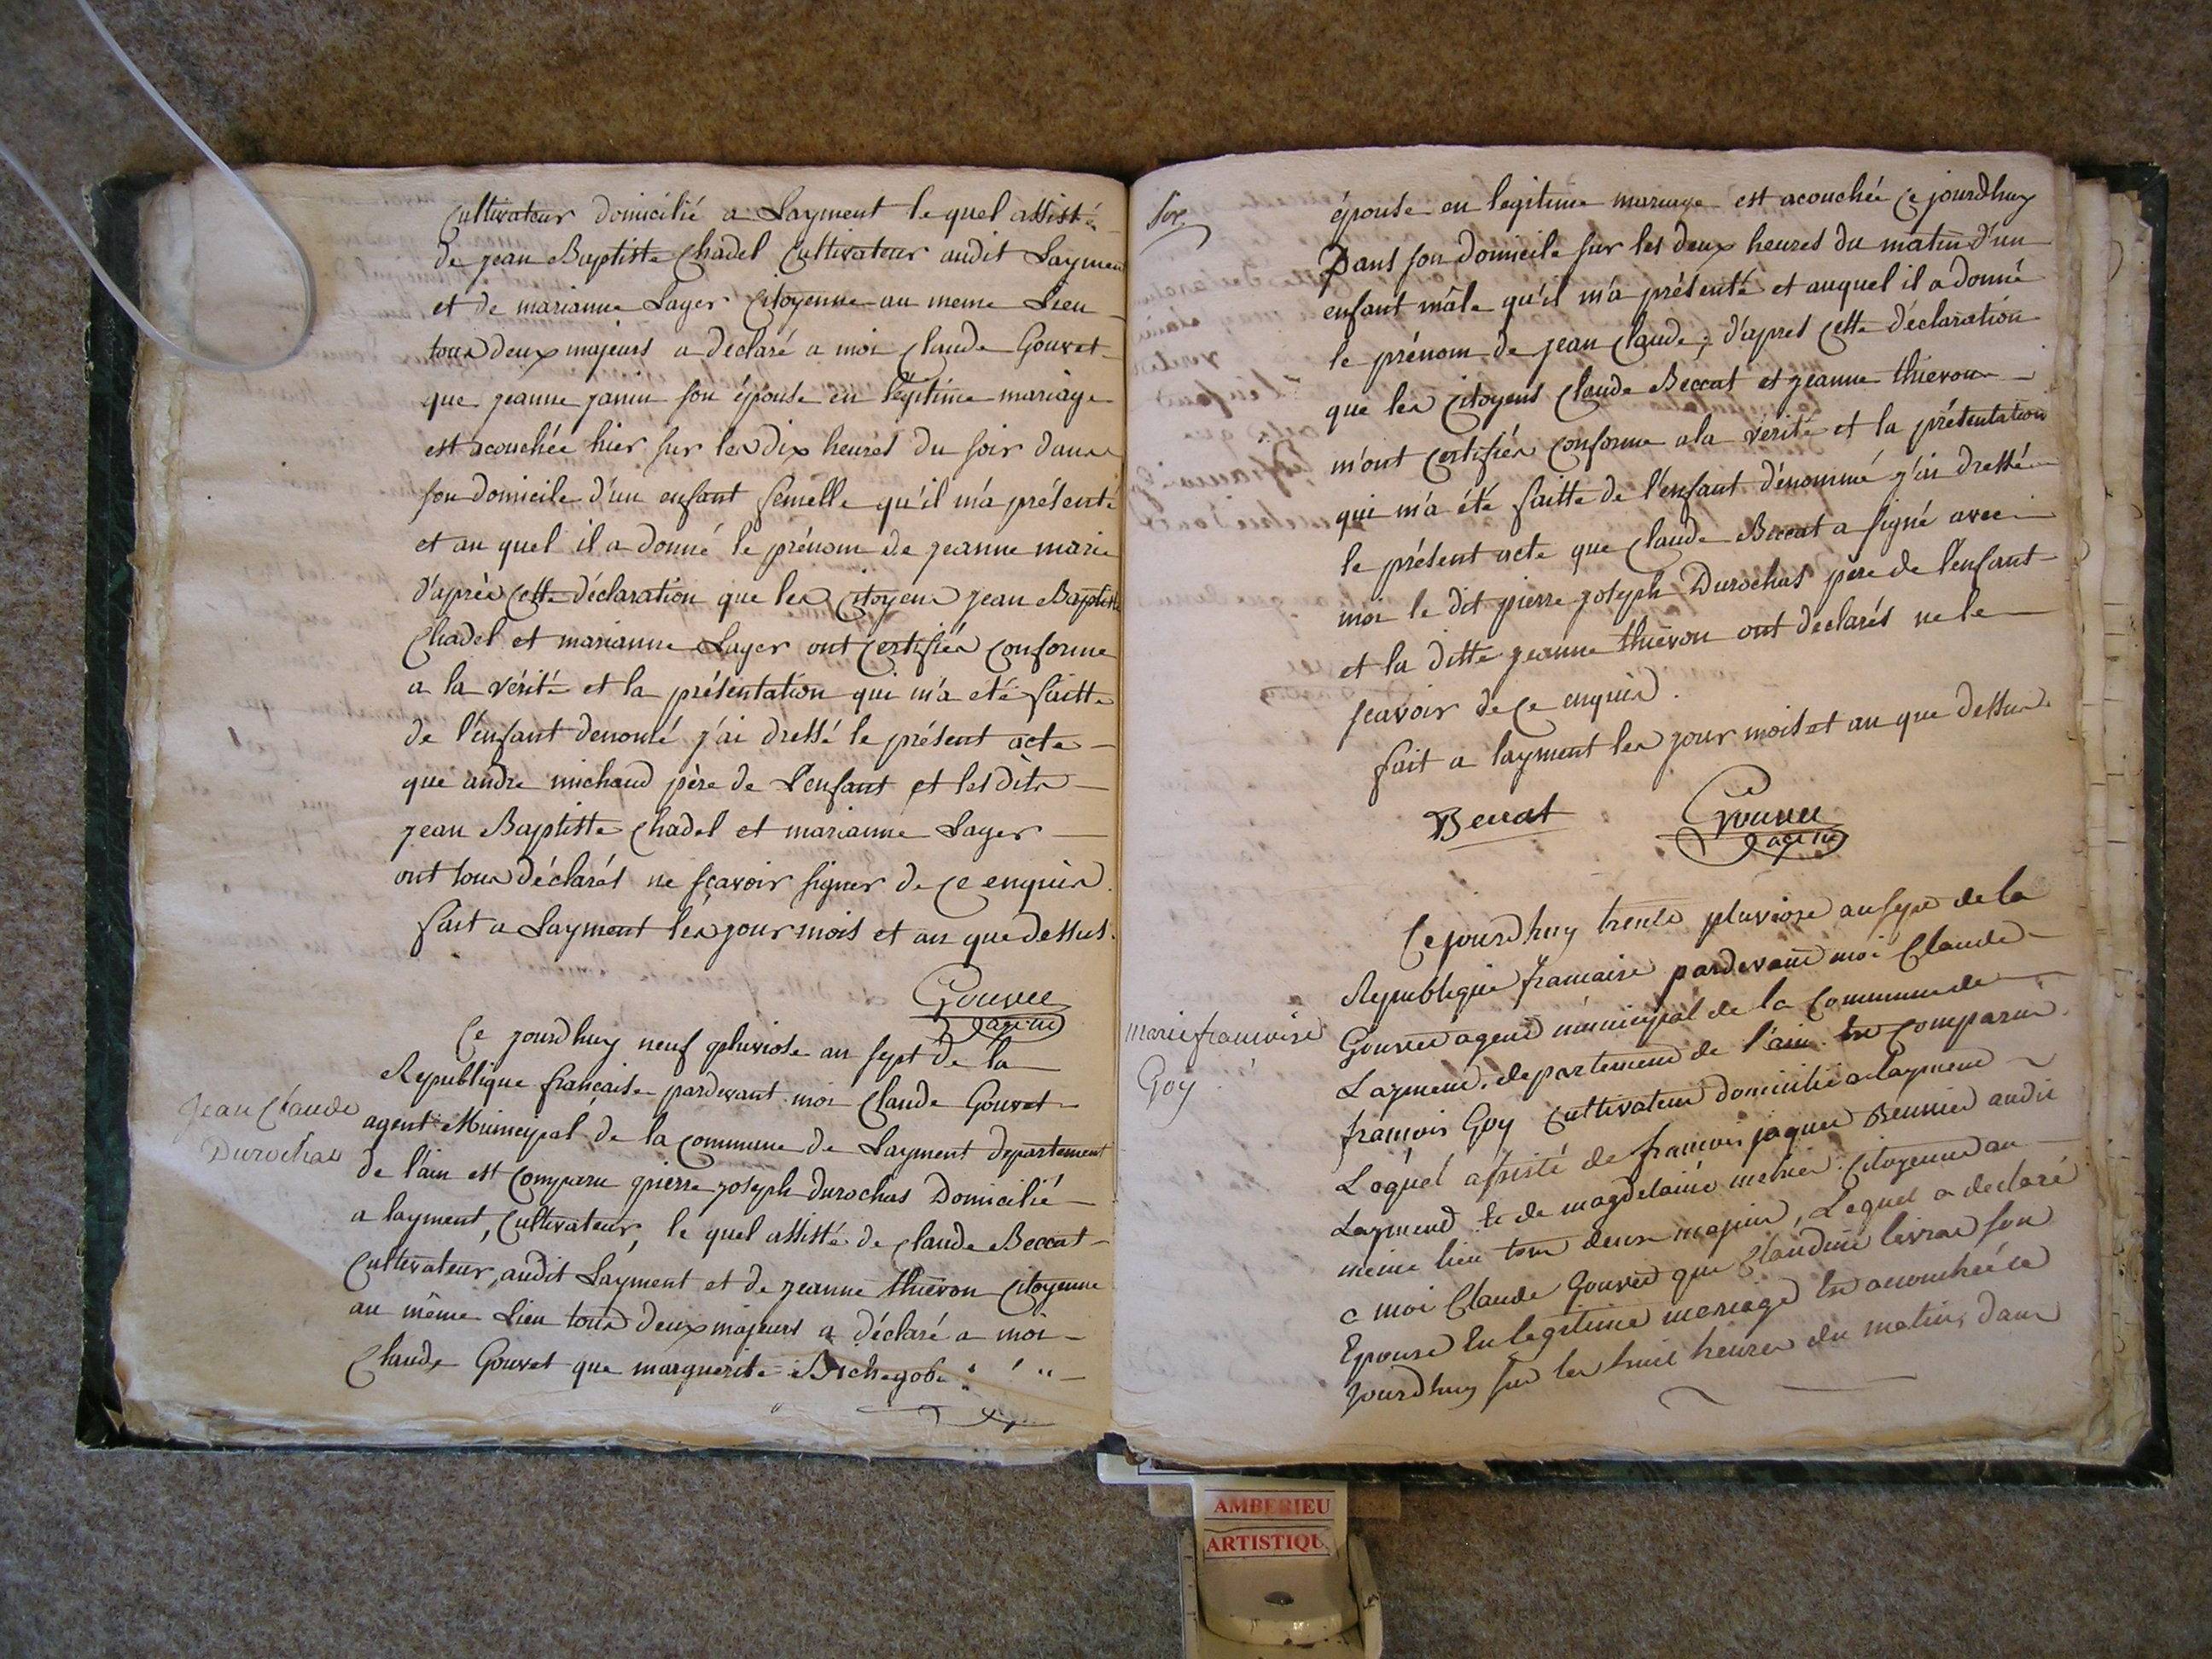 Cultivateur domicilié a Layment le quel assisté
de jean Baptiste Chadel Cultivateur audit Layment
et de marianne Layer Citoyenne au meme Lieu
tous deux majeurs a declaré a moi Claude Gouvet
que jeanne janin son épouse en légitime mariage
est acouchée hier sur les dix heures du soir dans
son domicile d'un enfant femelle qu'il m'a présenté
et au quel il a donné le prénom de jeanne marie
d'après cette déclaration que les Citoyens jean Baptiste
Chadel et marianne Layer ont certifiés conforme
a la vérité et la présentation qui m'a été faitte
de l'enfant denomé j'ai dressé le présent acte
que andre michaud père de L'enfant et les dits
jean Baptiste Chadel et marianne Layer
ont tous déclarés ne sçavoir signer de ce enquis.
fait a Layment les jour mois et an que dessus.
Gouvet
agent
Jean Claude
Durochas
Ce jourdhuy neuf pluviose an sept de la
Republique française pardevant moi Claude Gouvet
agent Municipal de la commune de Layment departement
de l'ain est comparu pierre joseph durochas Domicilié
a layment, Cultivateur, le quel assisté de Claude Beccat
Cultivateur, audit Layment et de jeanne thiévon Citoyenne
au même Lieu tous deux majeurs a déclaré a moi
Claude Gouvet que marguerite
épouse en legitime mariage est acouchée ce jourdhuy
Dans son domicile sur les deux heures du matin d'un
enfant mâle qu'il m'a présenté et auquel il a donné
le prénom de jean Claude, d'apres cette déclaration
que les Citoyens Claude Beccat et jeanne thievon
m'ont certifiés conforme a la vérité et la présentation
qui m'a été faitte de l'enfant dénommé j'ai dressé
le présent acte que Claude Beccat a signé avec
moi le dit pierre joseph Durochas père de l'enfant
et la ditte jeanne thiévon ont declarés ne le
scavoir de ce enquis.
fait a layment les jour mois et an que dessus.
Beccat
Gouvet
agent
marie francoise
Goy
Cejourdhuy trente pluviose an sept de la
Republique francaise pardevant moi Claude
Gouvet agent municipal de la Commune de
Layment, departement de l'ain. est Comparu
francois Goy Cultivateur domicilié a layment
Lequel assisté de francois jaques audit
Layment et de magdelaine Citoyenne au
meme lieu tous deux majeurs, Lequel a declaré
a moi Claude Gouvet que Claudine livrae son
Epouse En legitime mariage est accouchée ce
jourdhuy sur les huit heures du matin, dans
AMBERIEU
ARTISTIQU